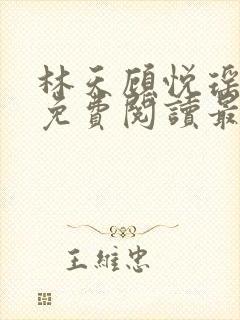 林天顾悦瑶
免費閱讀最
王維忠